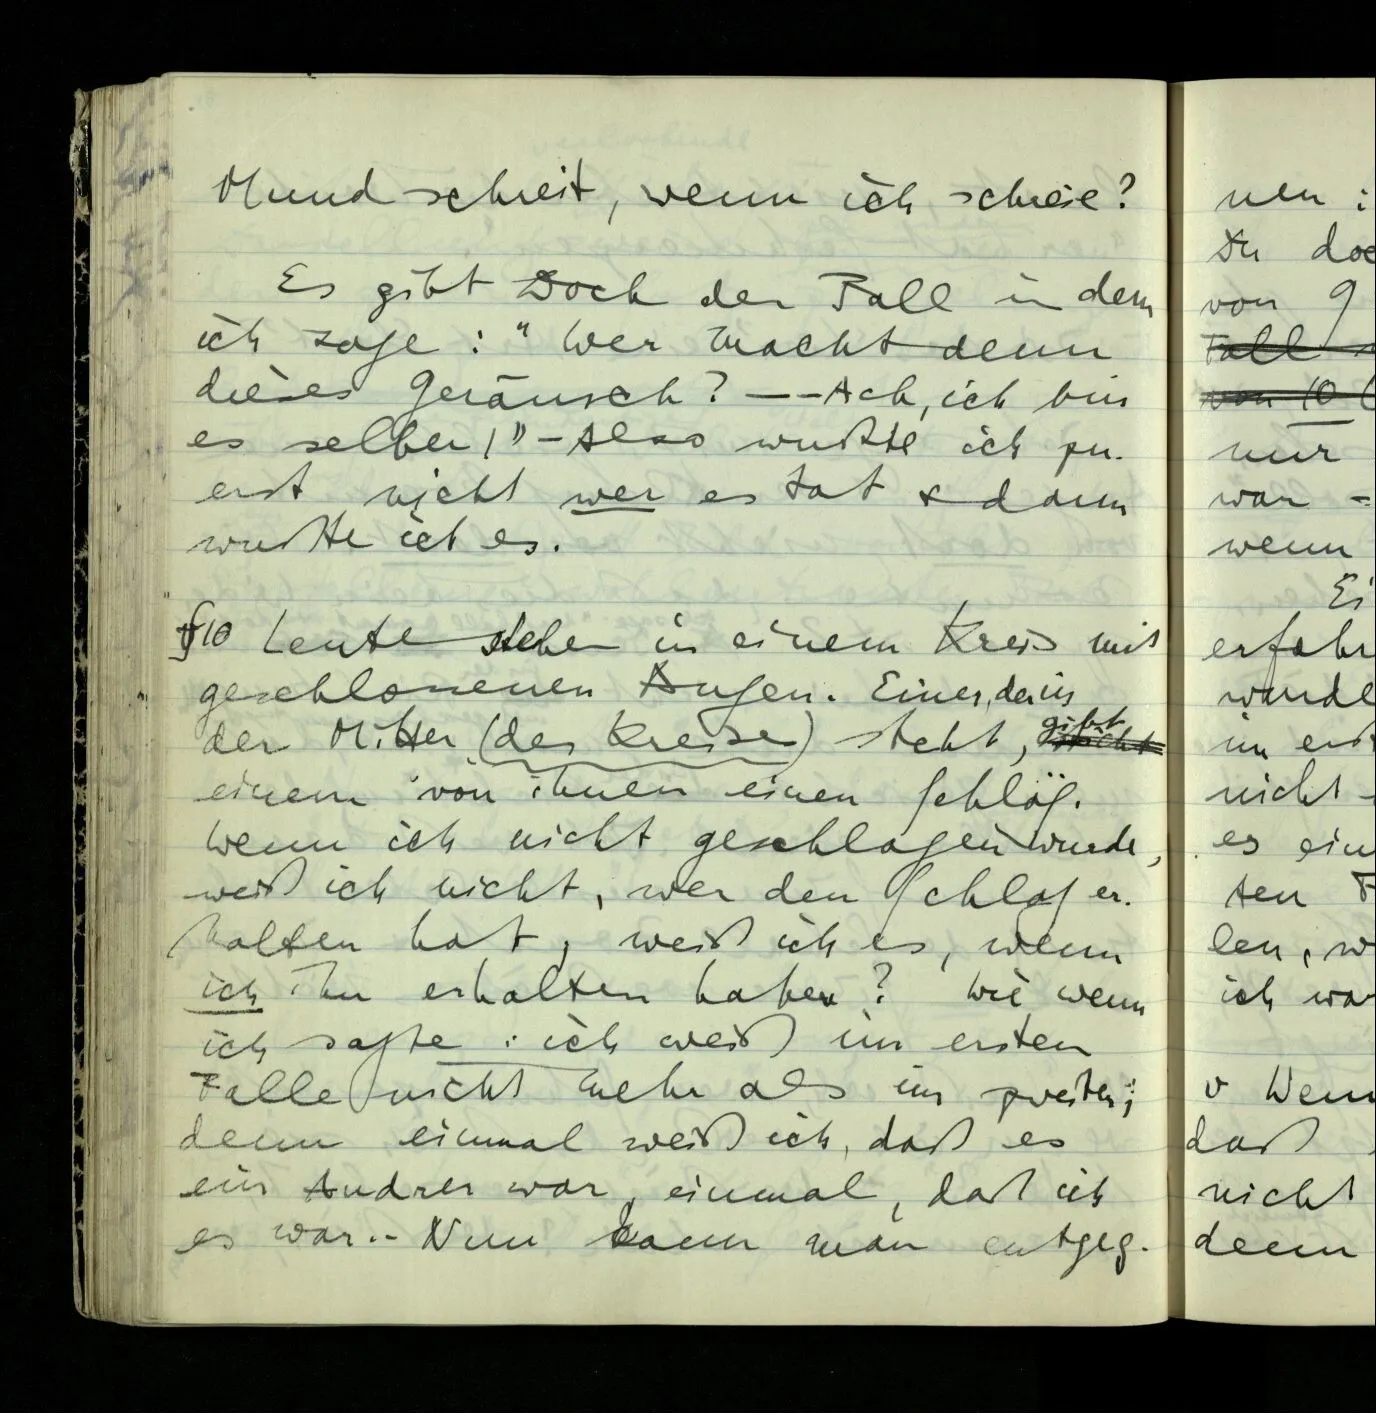 Mund schreit, wenn ich schreie?
Es gibt doch den Fall in dem
ich sage: "Wer macht denn
dieses Geräusch? –– Ach, ich bin
es selber!" – Also wußte ich zu-
erst nicht wer es tat & dann
wußte ich es.
§10 Leute stehen in einem Kreis mit
geschlossenen Augen. Einer, der in
der Mitte (des Kreises) steht, gibt
einem von ihnen einen Schlag.
Wenn ich nicht geschlagen wurde,
weiß ich nicht, wer den Schlag er-
halten hat, weiß ich es, wenn
ich ihn erhalten habe? Wie wenn
ich sagte: ich weiß im ersten
Falle nicht mehr als im zweiten;
denn einmal weiß ich, daß es
ein Andrer war, einmal, daß ich
es war. – Nun kann man entgeg-
nen:
Du doc
von 9
Fall
von 10
nur
war –
wenn
Ei
erfahr
wurde
im ers
nicht –
es ein
ten F
len, w
ich war
Wenn
daß
nicht
denn